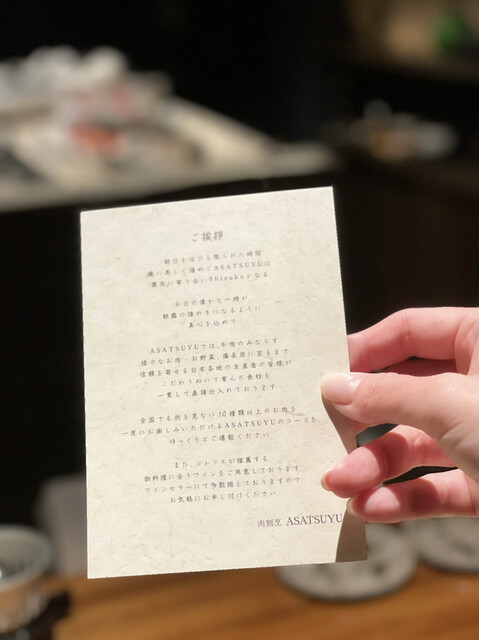 ご挨拶
朝日を浴びる限られた時間
儚く美しく煌めくASATSUYUは
葉先に寄り合いShizukuとなる
今日の僅かな一時が
朝露の煌めきになるように
真心を込めて
ASATSUYUでは、牛肉のみならず
様々なお肉・お野菜、備長炭に至るまで
信頼を寄せる日本各地の生産者の皆様が
こだわりぬいて育んだ食材を
一貫して直接仕入れております
全国でも例を見ない10種類以上のお肉を
一度にお楽しみいただけるASATSUYUのコースを
ゆっくりとご堪能ください
また、ソムリエが推薦する
御料理に合うワインをご用意しております
ワインセラーにて多数揃えておりますので
お気軽にお申し付けください
肉割烹 ASATSUYU